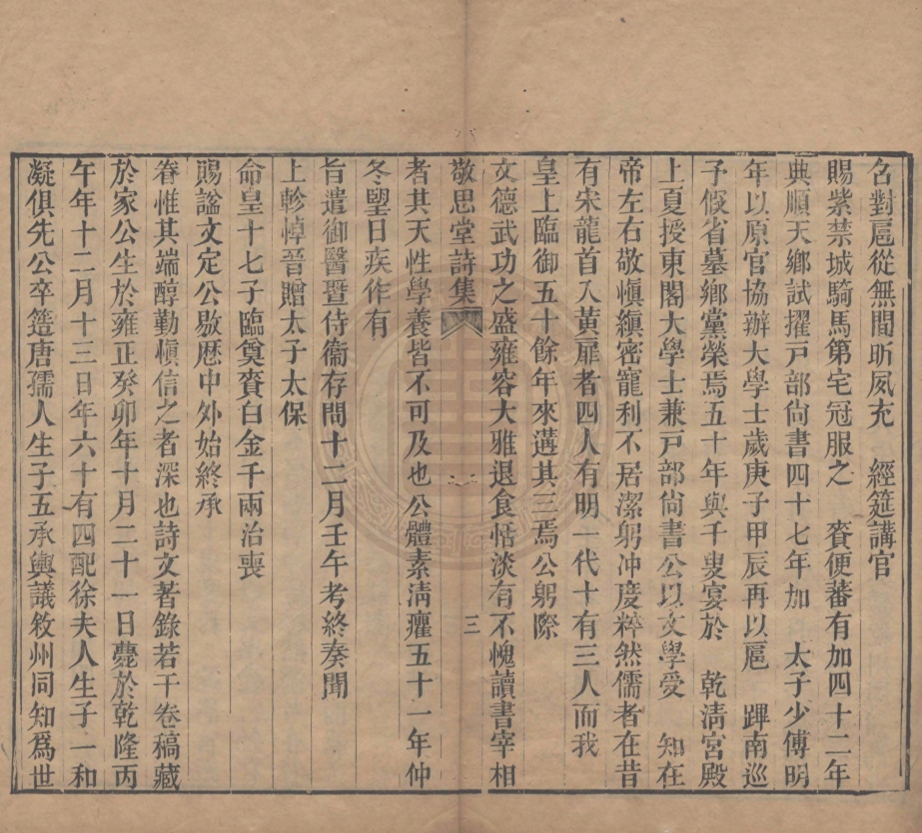 名對扈從無間昕夙充　經筵講官
賜紫禁城騎馬第宅冠服之　賚便蕃有加四十二年
典順天鄉試擢戸部尙書四十七年加　太子少傅明
年以原官協辦大學士歲庚子甲辰再以扈　蹕南巡
子假省墓鄉黨榮焉五十年與千叟宴於　乾淸宮殿
上夏授東閣大學士兼戸部尙書公以文學受　知在
帝左右敬愼縝密寵利不居潔躬沖度粹然儒者在昔
有宋龍首入黃扉者四人有明一代十有三人而我
皇上臨御五十餘年來遘其三焉公躬際
文德武功之盛雍容大雅退食恬淡有不愧讀書宰相
敬思堂詩集　三
者其天性學養皆不可及也公體素淸癯五十一年仲
冬望日疾作有
旨遣御醫曁侍衞存問十二月壬午考終奏聞
上軫悼晉贈太子太保
命皇十七子臨奠賚白金千兩治喪
賜謚文定公敭歴中外始終承
眷惟其端醇勤愼信之者深也詩文著錄若干卷稿藏
於家公生於雍正癸卯年十月二十一日薨於乾隆丙
午年十二月十三日年六十有四配徐夫人生子一和
凝俱先公卒簉唐孺人生子五承輿議敘州同知爲世